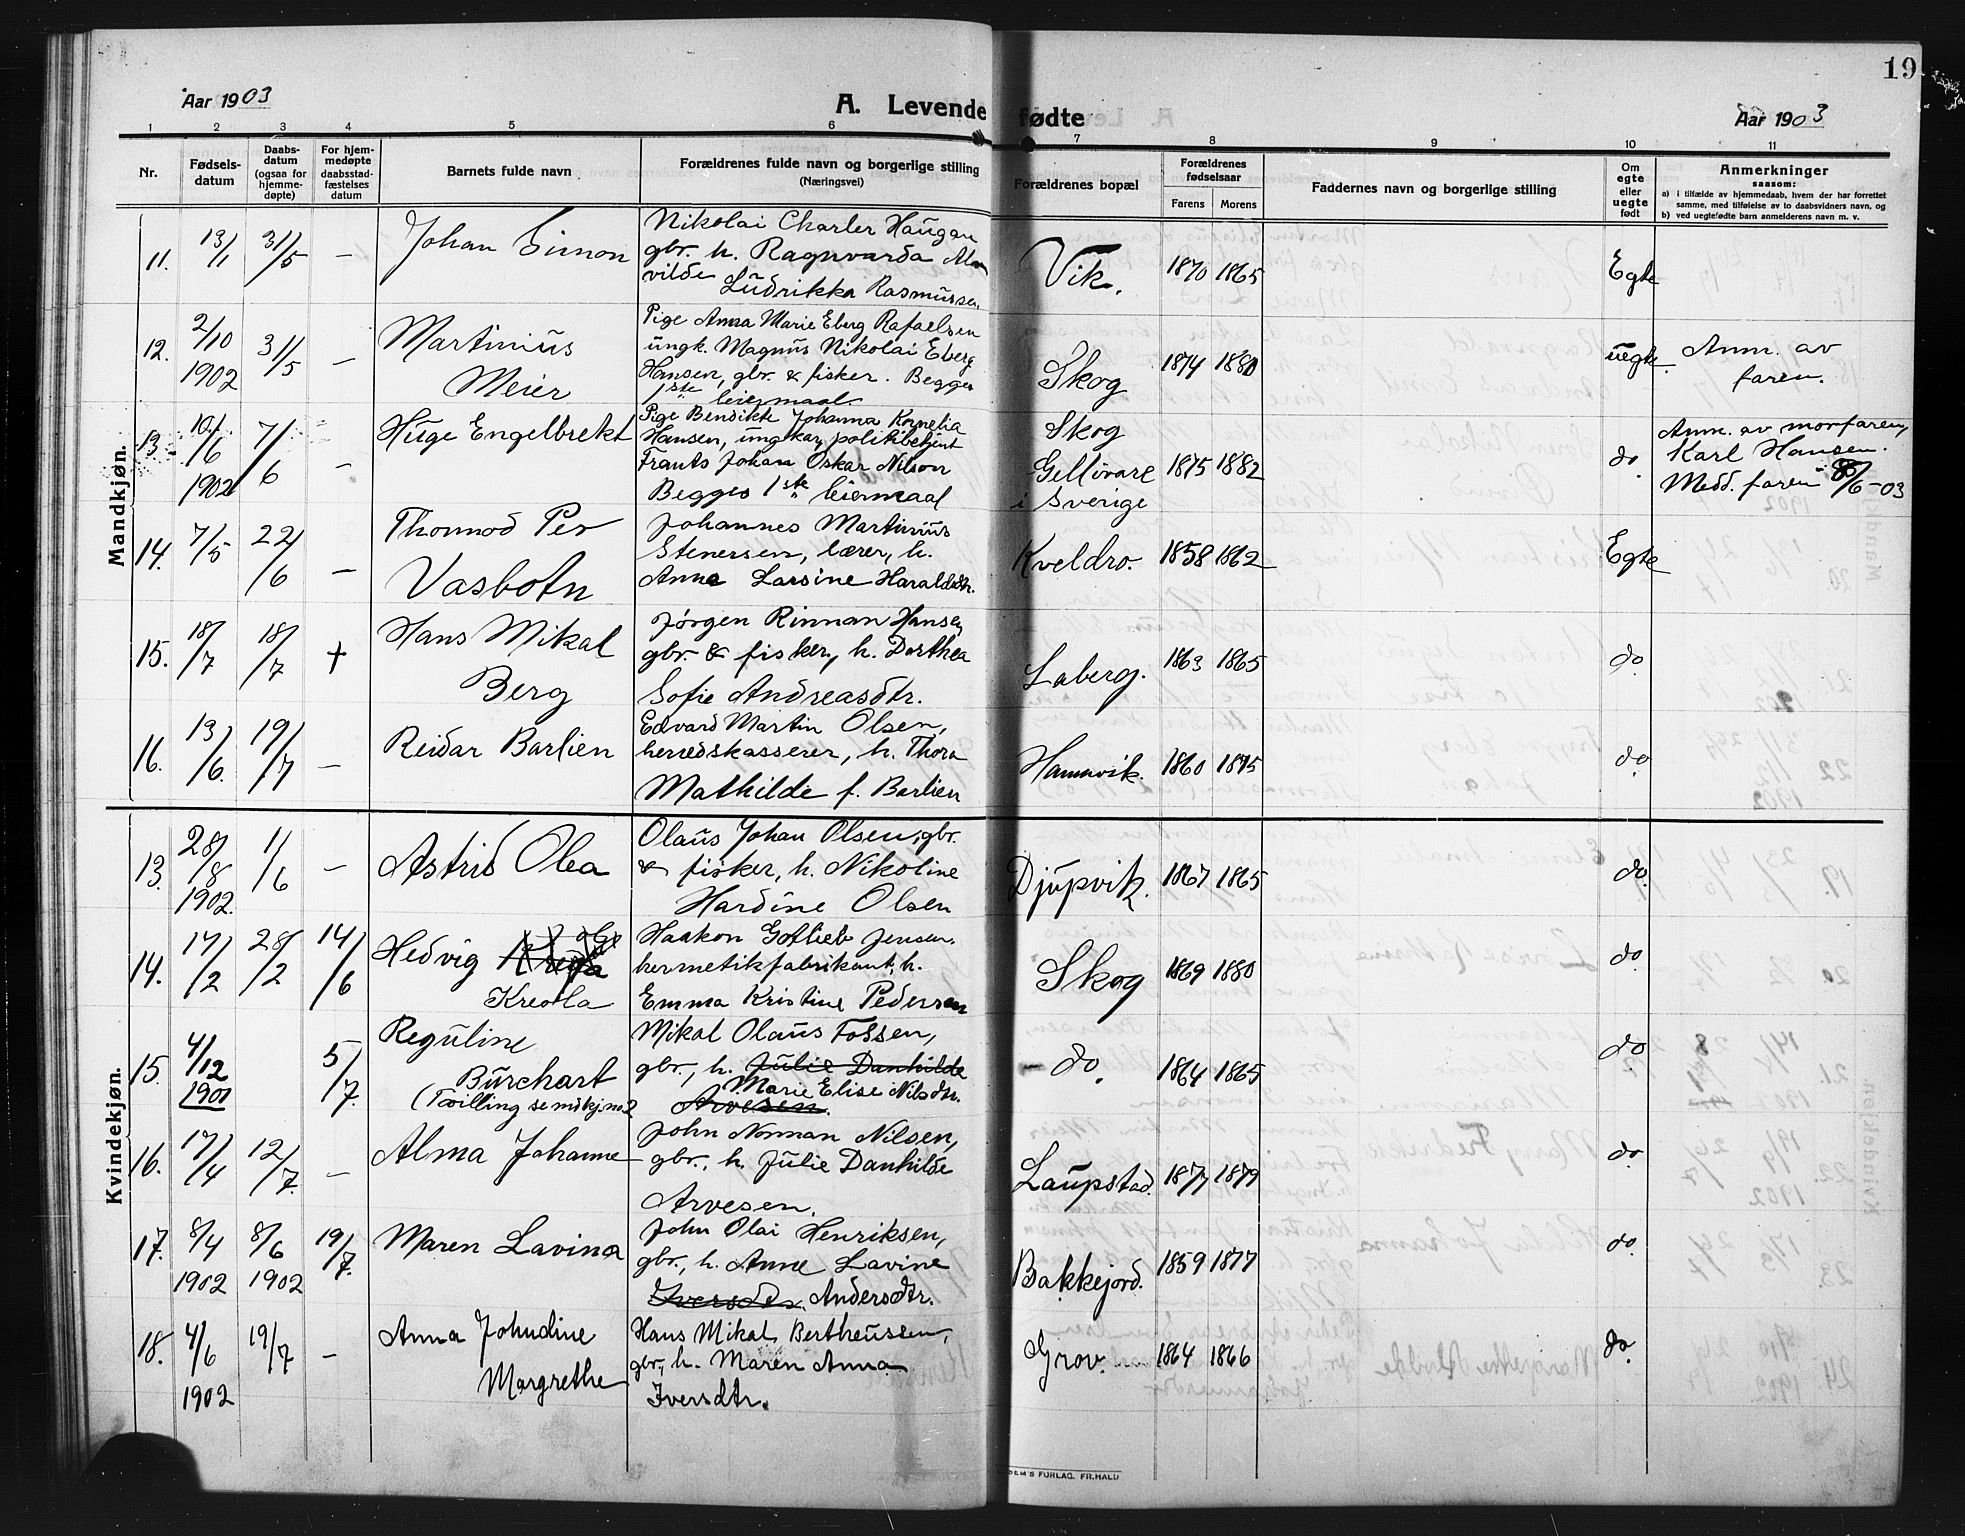 19
Aar 1903
A. Levende fødte
Aar 1903
1 2 3 4 5 6 7 8 9 10 11
Nr.
Fødsels-
datum
Daabs-
datum
(ogsaa for
hjemme-
døpte)
For hjem-
medøpte
daabsstad-
fæstelses
datum
Barnets fulde navn
Forældrenes fulde navn og borgerlige stilling
(Næringsvei)
Forældrenes bopæl
Forældrenes
fødselsaar
Farens Morens
Faddernes navn og borgerlige stilling
Om
egte
eller
uegte
født
Anmerkninger
saasom:
a) i tilfælde av hjemmedaab, hvem der har forrettet
samme, med tilføielse av to daabsvidners navn, og
b) ved uegtefødte barn anmelderens navn m. v.
Mandkjøn.
11. 13/1 31/5 – Johan Simon
Nikolai Charler Haugan
gbr. h. Ragnvarda
vilde
Ludrikka Rasmussen.
Vik. 1870 1865 Egte
12. 2/10
1902 31/5 – Martinius
Meier
Pige Anna Marie Eberg Rafaelsen
ungk. Magnus Nikolai Eberg
Hansen, gbr. & fisker. Begges
1ste leiermaal.
Skog 1874 1880 uegte. Anm. av
faren.
13. 10/6
1902 7/6 – Huge Engelbrekt
Pige Bendikte Johanna Kornelia
Hansen, ungkar, politibetjent
Frants Johan Oskar Nilson
Begges 1ste leiermaal
Skog
Gellivare
i Sverige
1875 1882 do. Anm. av morfaren,
Karl Hansen.
Medd. faren 8/6-03
14. 7/5 22/6 – Thormod Per
Vasbotn
Johannes Martinius
Stenersen, lærer, h.
Anna Larsine Haraldsdtr.
Kveldro. 1858 1862 Egte
15. 18/7 18/7 + Hans Mikal
Berg
Jørgen Rinnan Hansen,
gbr. & fisker, h. Dorthea
Sofie Andreasdtr.
Laberg. 1863 1865 do.
16. 13/6. 19/7 – Reidar Barlien
Edvard Martin Olsen,
herredskasserer, h. Thora
Mathilde f. Barlien
Hamnvik. 1860 1875 do.
Kvindekjøn.
13. 28/8
1902. 1/6 – Astrid Olea
Olaus Johan Olsen, gbr.
& fisker, h. Nikoline
Hardine Olsen
Djupvik. 1867 1865 do.
14. 17/2 28/2 14/6 Hedvig
Kreola
Haakon Gotlieb Jensen,
hermetikfabrikant, h.
Emma Kristine Pedersen
Skog 1869 1880 do.
15. 4/12
1900 5/7. Reguline
Burchart
(Tvilling se mdkj. no 2
Mikal Olaus Fossen,
gbr., h. Julie Danhilde
Marie Elise Nilsdtr.
Arvesen.
– do. 1864 1865 do.
16. 17/4 12/7. – Alma Johanne
John Norman Nilsen,
gbr., h. Julie Danhilde
Arvesen.
Laupstad. 1877 1879 do.
17. 8/4
1902 8/6
1902 19/7. Maren Lavina
John Olai Henriksen,
gbr., h. Anne Lavine
Iversdtr. Andersdtr.
Bakkejord. 1859 1877 do.
18. 4/6
1902 19/7 – Anna Johndine
Margrethe
Hans Mikal Bertheussen,
gbr., h. Maren Anna
Iversdtr.
Grov. 1864 1866 do.
FORLAG. FR. HALD